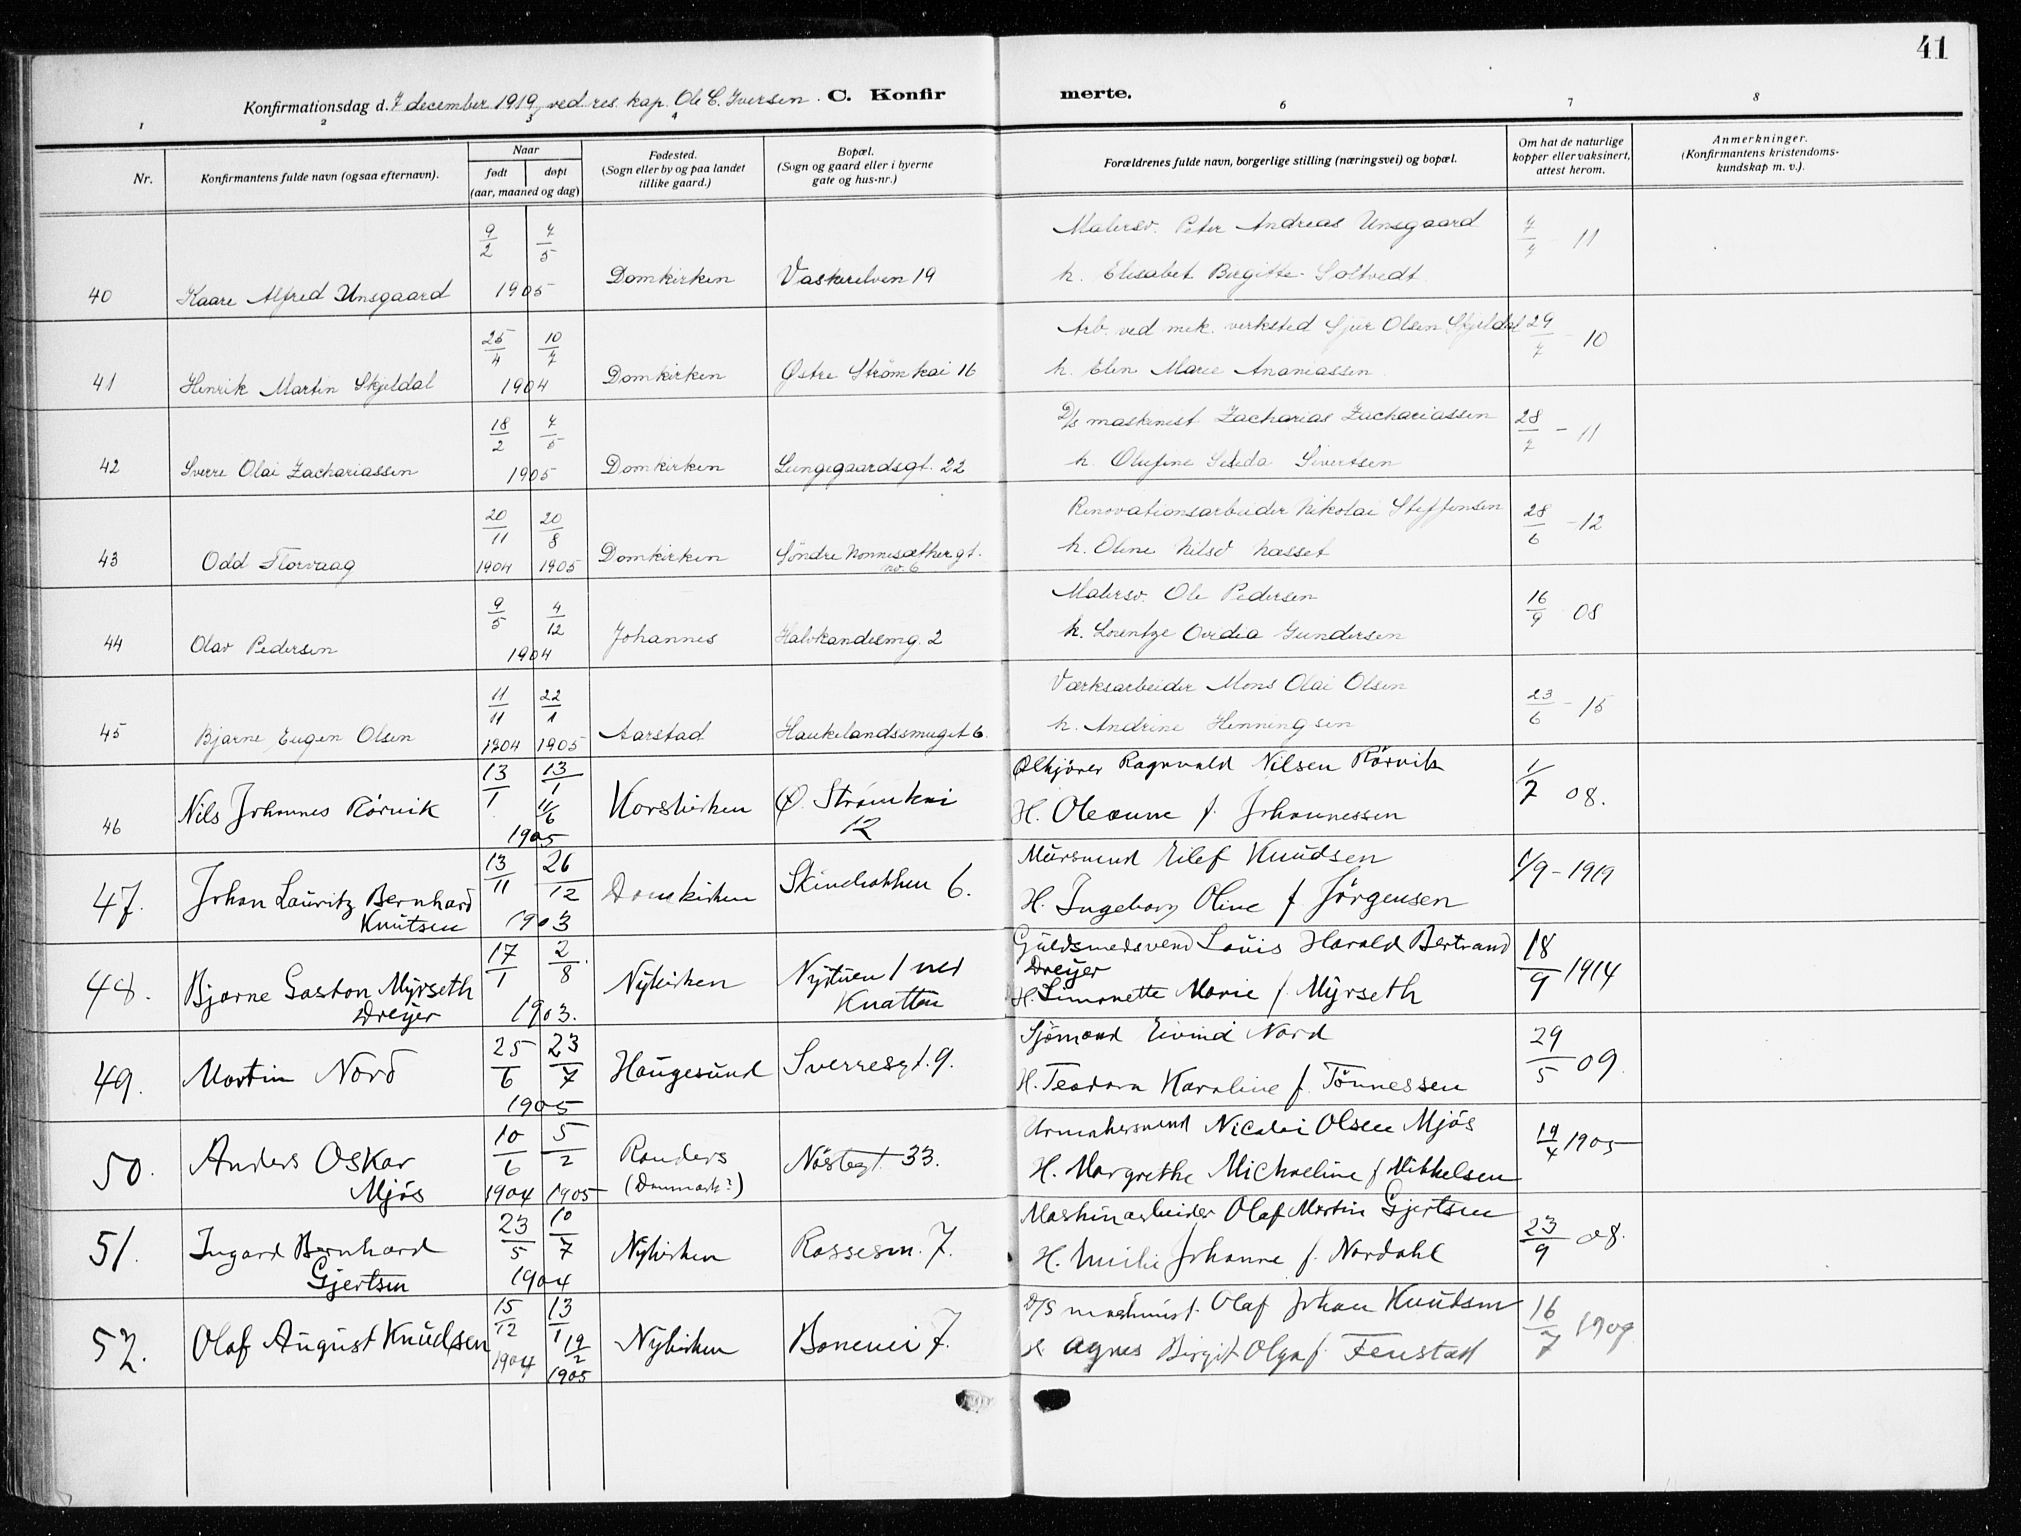 41
Konfirmationsdag d. 7 december 1919, ved res. kap. Ole C. Iversen. C. Konfirmerte.
1 2 3 4 6 7 8
Nr.
Konfirmantens fulde navn (ogsaa efternavn).
Naar
født døpt
(aar, maaned og dag)
Fødested.
(Sogn eller by og paa landet
tillike gaard.)
Bopæl.
(Sogn og gaard eller i byerne
gate og hus-nr.)
Forældrenes fulde navn, borgerlige stilling (næringsvei) og bopæl.
Om hat de naturlige
kopper eller vaksinert,
attest herom.
Anmerkninger.
(Konfirmantens kristendoms-
kundskap m. v.).
40 Kaare Alfred Unsgaard 9/2 7/5 1905 Domkirken Vaskerelven 19
Malersv. Peter Andreas Unsgaard
h. Elisabet Birgitte Soltvedt
7/7 - 11
41 Henrik Martin Skjeldal 25/4 10/7 1904 Domkirken Østre Strømkai 16
Arb. ved mek. verksted Sjur Olsen Skjeldal
h. Elen Marie Ananiassen
29/7 - 10
42 Sverre Olai Zachariassen 18/2 7/5 1905 Domkirken Lungegaardsgt. 22
D/s maskinist Zacharias Zachariassen
h. Olufine Sivertsen
28/7 - 11
43 Odd Florvaag 20/11 1904 20/8 1905 Domkirken Søndre Nonnesæthergt.
no. 6
Renovationsarbeider Nikolai Steffensen
h. Oline Nilsd Næsset
28/6 - 12
44 Olav Pedersen 9/5 4/12 1904 Johannes Halvkandesmg. 2
Malersv. Ole Pedersen
h. Lorentze Ovidia Gundersen
16/9 08
45 Bjarne Eugen Olsen 11/11 1904 22/1 1905 Aarstad Haukelandssmuget 6.
Værksarbeider Mons Olai Olsen
h. Andrine Henningsen
23/6 - 15
46 Nils Johannes Rörvik 13/1 13/1 11/6 1905 Korskirken Ø. Strømkai
12
Ølkjörer Ragnvald Nilsen Rörvik
H. Oleanne f. Johannessen
1/7 08.
47. Johan Lauritz Bernhard
Knutsen
13/11 26/12 1903 Domkirken Skindhatken 6.
Mursvend Eilef Knudsen
H. Ingeborg Oline f Jörgensen
1/9 - 1919
48. Bjarne Gaston Myrseth
Dreyer
17/1 2/8. 1903. Nykirken Nytuen 1 ved
Knatten
Guldsmedsvend Louis Harald Bertrand
Dreyer
H. Simonette Marie f. Myrseth
18/9 1914
49. Martin Nord 25/6 23/7 1905 Haugesund Sverresgt. 9.
Sjömand Eivind Nord
H. Teodora Karoline f. Tönnessen
29/5 09
50. Anders Oskar
Mjös
10/6 1904 5/2 1905 Randers
(Danmark?)
Nöstegt. 33.
Urmakersvend Nicolai Olsen Mjös
H. Margrethe Michaeline f Mikkelsen
19/4 1905
51. Ingard Bernhard
Gjertsen
23/5 10/7 1904 Nykirken Rossesm. 7.
Maskinarbeider Olaf Martin Gjertsen
H. Milie Johanne f. Nordahl
23/9 08.
52. Olaf August Knudsen 15/12 1904 13/1 19/2 1905 Nykirken Bonevei 7.
D/S maskinist. Olaf Johan Knudsen
H Agnes Birgit Olga f. Fenstad
16/7 1909